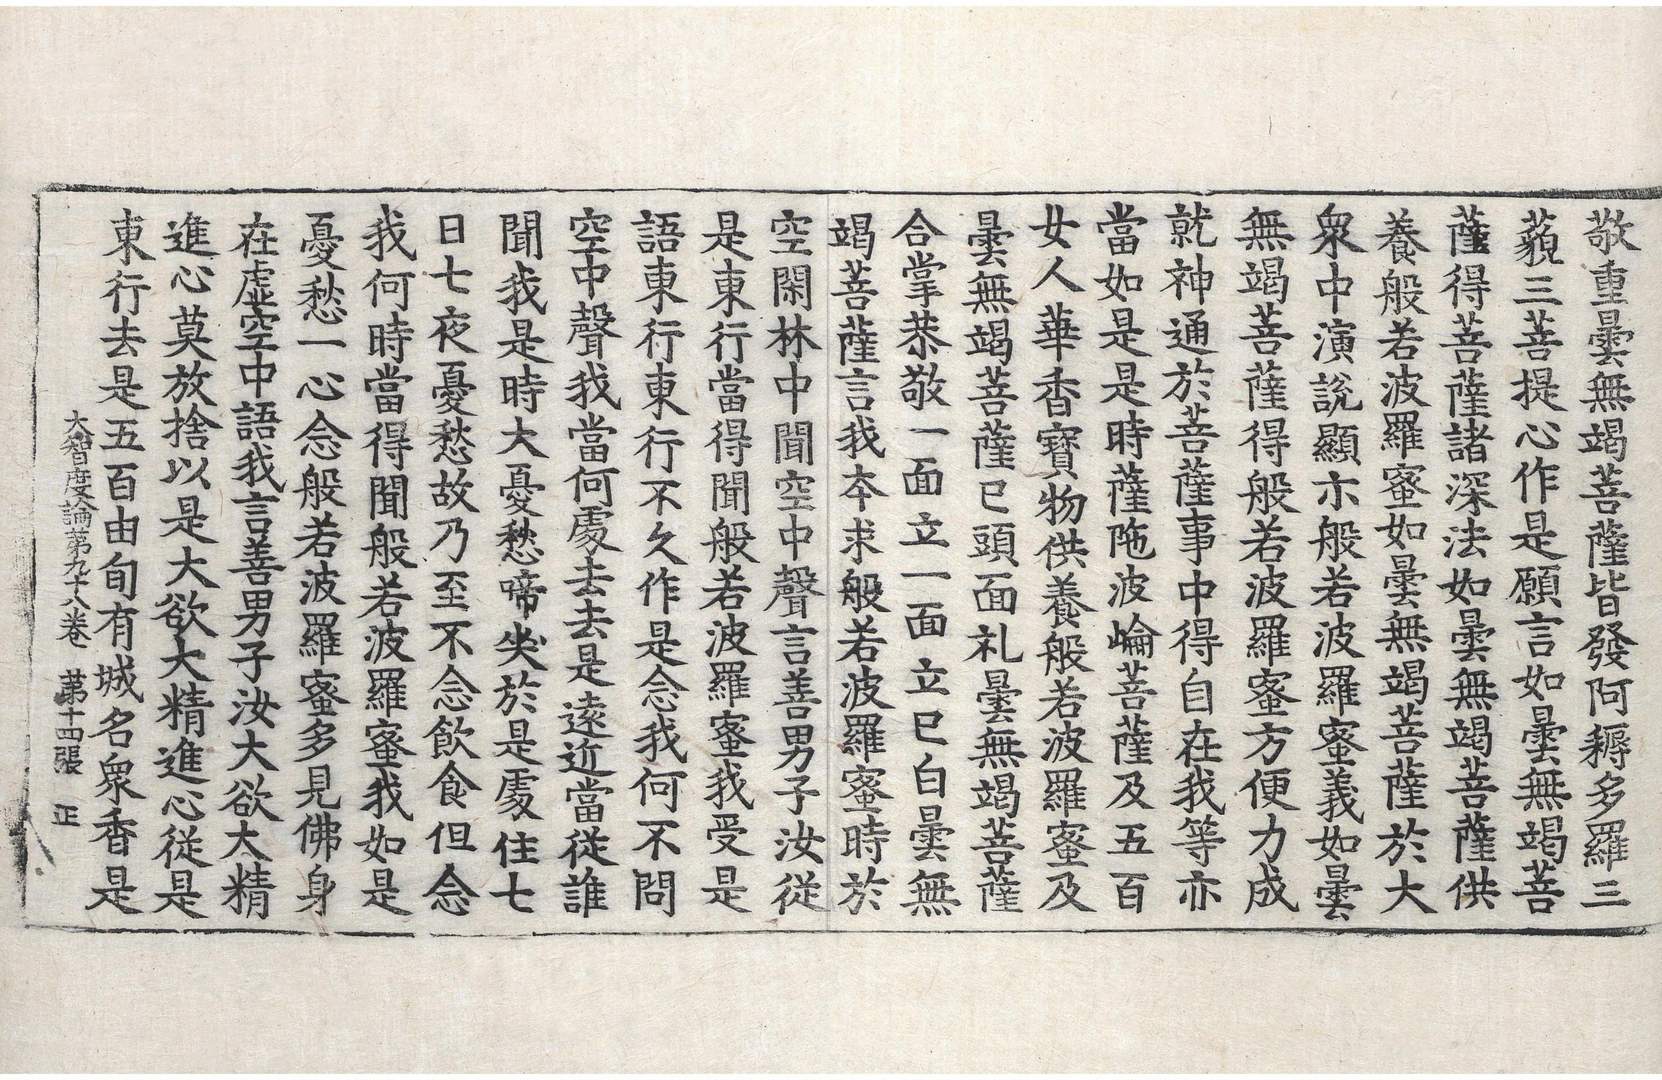 敬重曇無竭菩薩皆發阿耨多羅三
藐三菩提心作是願言如曇無竭菩
薩得菩薩諸深法如曇無竭菩薩供
養般若波羅蜜如曇無竭菩薩於大
衆中演說顯示般若波羅蜜義如曇
無竭菩薩得般若波羅蜜方便力成
就神通於菩薩事中得自在我等亦
當如是是時薩陁波崘菩薩及五百
女人華香寶物供養般若波羅蜜及
曇無竭菩薩已頭面礼曇無竭菩薩
合掌恭敬一面立一面立已白曇無
竭菩薩言我夲求般若波羅蜜時於
空閑林中聞空中聲言善男子汝從
是東行當得聞般若波羅蜜我受是
語東行東行不久作是念我何不問
空中聲我當何䖏去去是遠近當從誰
聞我是時大憂愁啼哭於是䖏住七
日七夜憂愁故乃至不念飲食但念
我何時當得聞般若波羅蜜我如是
憂愁一心念般若波羅蜜多見佛身
在虛空中語我言善男子汝大欲大精
進心莫放捨以是大欲大精進心從是
東行去是五百由旬有城名衆香是
大智度論第九十八卷 第十四張 正